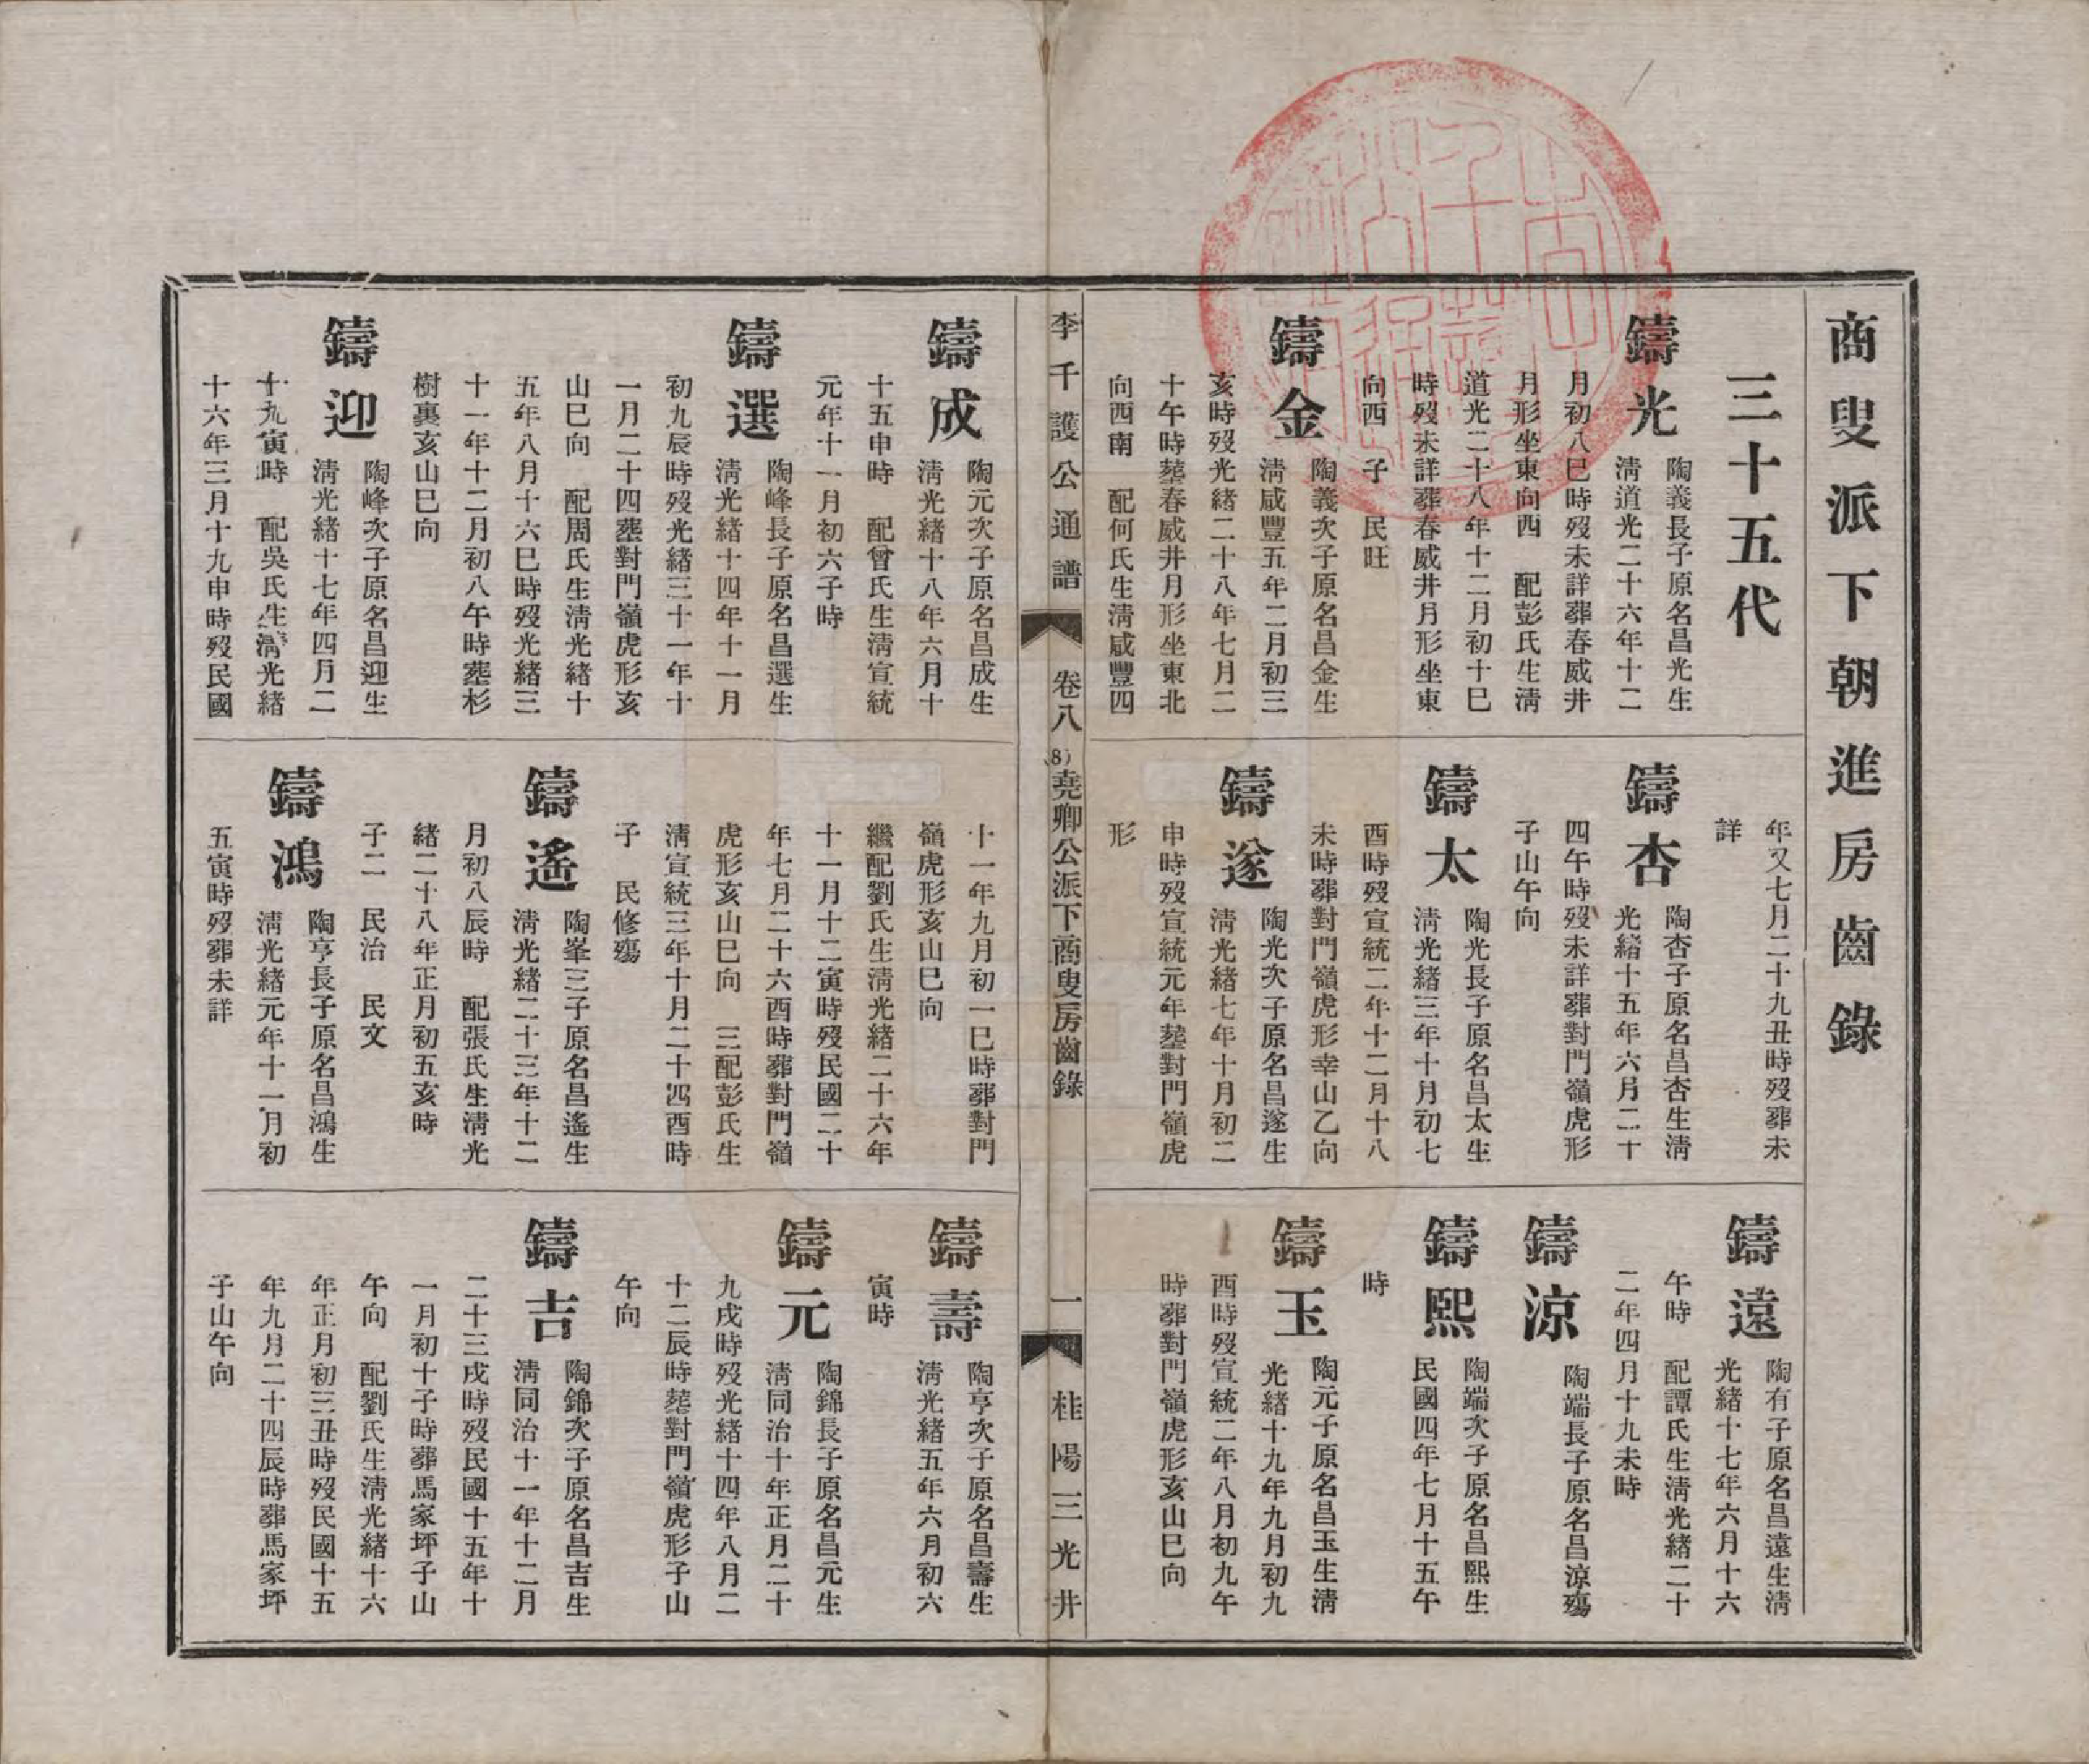 商叟派下朝進房齒錄
三十五代
鑄光
陶義長子原名昌光生
清道光二十六年十二
月初八巳時歿未詳葬春威井
月形坐東向西 配彭氏生清
道光二十八年十二月初十巳
時歿未詳葬春威井月形坐東
向西 子 民旺
鑄金
陶義次子原名昌金生
清咸豐五年二月初三
亥時歿光緒二十八年七月二
十午時塟春威井月形坐東北
向西南 配何氏生清咸豐四
年又七月二十九丑時歿葬未
詳
鑄杏
陶杏子原名昌杏生清
光緒十五年六月二十
四午時歿未詳葬對門嶺虎形
子山午向
鑄太
陶光長子原名昌太生
清光緒三年十月初七
酉時歿宣統二年十二月十八
未時葬對門嶺虎形幸山乙向
鑄遂
陶光次子原名昌遂生
清光緒七年十月初二
申時歿宣統元年塟對門嶺虎
形
鑄遠
陶有子原名昌遠生清
光緒十七年六月十六
午時 配譚氏生清光緒二十
二年四月十九未時
鑄涼
陶端長子原名昌涼殤
鑄熙
陶端次子原名昌熙生
民國四年七月十五午
時
鑄玉
陶元子原名昌玉生清
光緒十九年九月初九
酉時歿宣統二年八月初九午
時葬對門嶺虎形亥山巳向
李千護公通譜
卷八
(8)
堯卿公派下商叟房齒錄
一
桂陽三光井
鑄成
陶元次子原名昌成生
清光緒十八年六月十
十五申時 配曾氏生清宣統
元年十一月初六子時
鑄選
陶峰長子原名昌選生
清光緒十四年十一月
初九辰時歿光緒三十一年十
一月二十四塟對門嶺虎形亥
山巳向 配周氏生清光緒十
五年八月十六巳時歿光緒三
十一年十二月初八午時塟杉
樹裏亥山巳向
鑄迎
陶峰次子原名昌迎生
清光緒十七年四月二
十九寅時 配吳氏生清光緒
十六年三月十九申時歿民國
十一年九月初一巳時葬對門
嶺虎形亥山巳向
繼配劉氏生清光緒二十六年
十一月十二寅時歿民國二十
年七月二十六酉時葬對門嶺
虎形亥山巳向 三配彭氏生
清宣統三年十月二十四酉時
子 民修殤
鑄遙
陶峯三子原名昌遙生
清光緒二十三年十二
月初八辰時 配張氏生清光
緒二十八年正月初五亥時
子二 民治 民文
鑄鴻
陶亨長子原名昌鴻生
清光緒元年十一月初
五寅時歿葬未詳
鑄壽
陶亨次子原名昌壽生
清光緒五年六月初六
寅時
鑄元
陶錦長子原名昌元生
清同治十年正月二十
九戌時歿光緒十四年八月二
十二辰時塟對門嶺虎形子山
午向
鑄吉
陶錦次子原名昌吉生
清同治十一年十二月
二十三戌時歿民國十五年十
一月初十子時葬馬家坪子山
午向 配劉氏生清光緒十六
年正月初三丑時歿民國十五
年九月二十四辰時葬馬家坪
子山午向